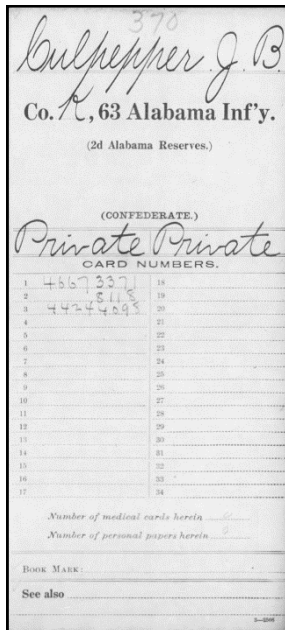 370
Culpepper, J. B.
Co. K, 63 Alabama Inf'y.
(2d Alabama Reserves.)
(CONFEDERATE.)
Private Private
CARD NUMBERS.
1 46673371 18
2 8118 19
3 44244098 20
4 21
5 22
6 23
7 24
8 25
9 26
10 27
11 28
12 29
13 30
14 31
15 32
16 33
17 34
Number of medical cards herein 0
Number of personal papers herein 0
BOOK MARK:
See also